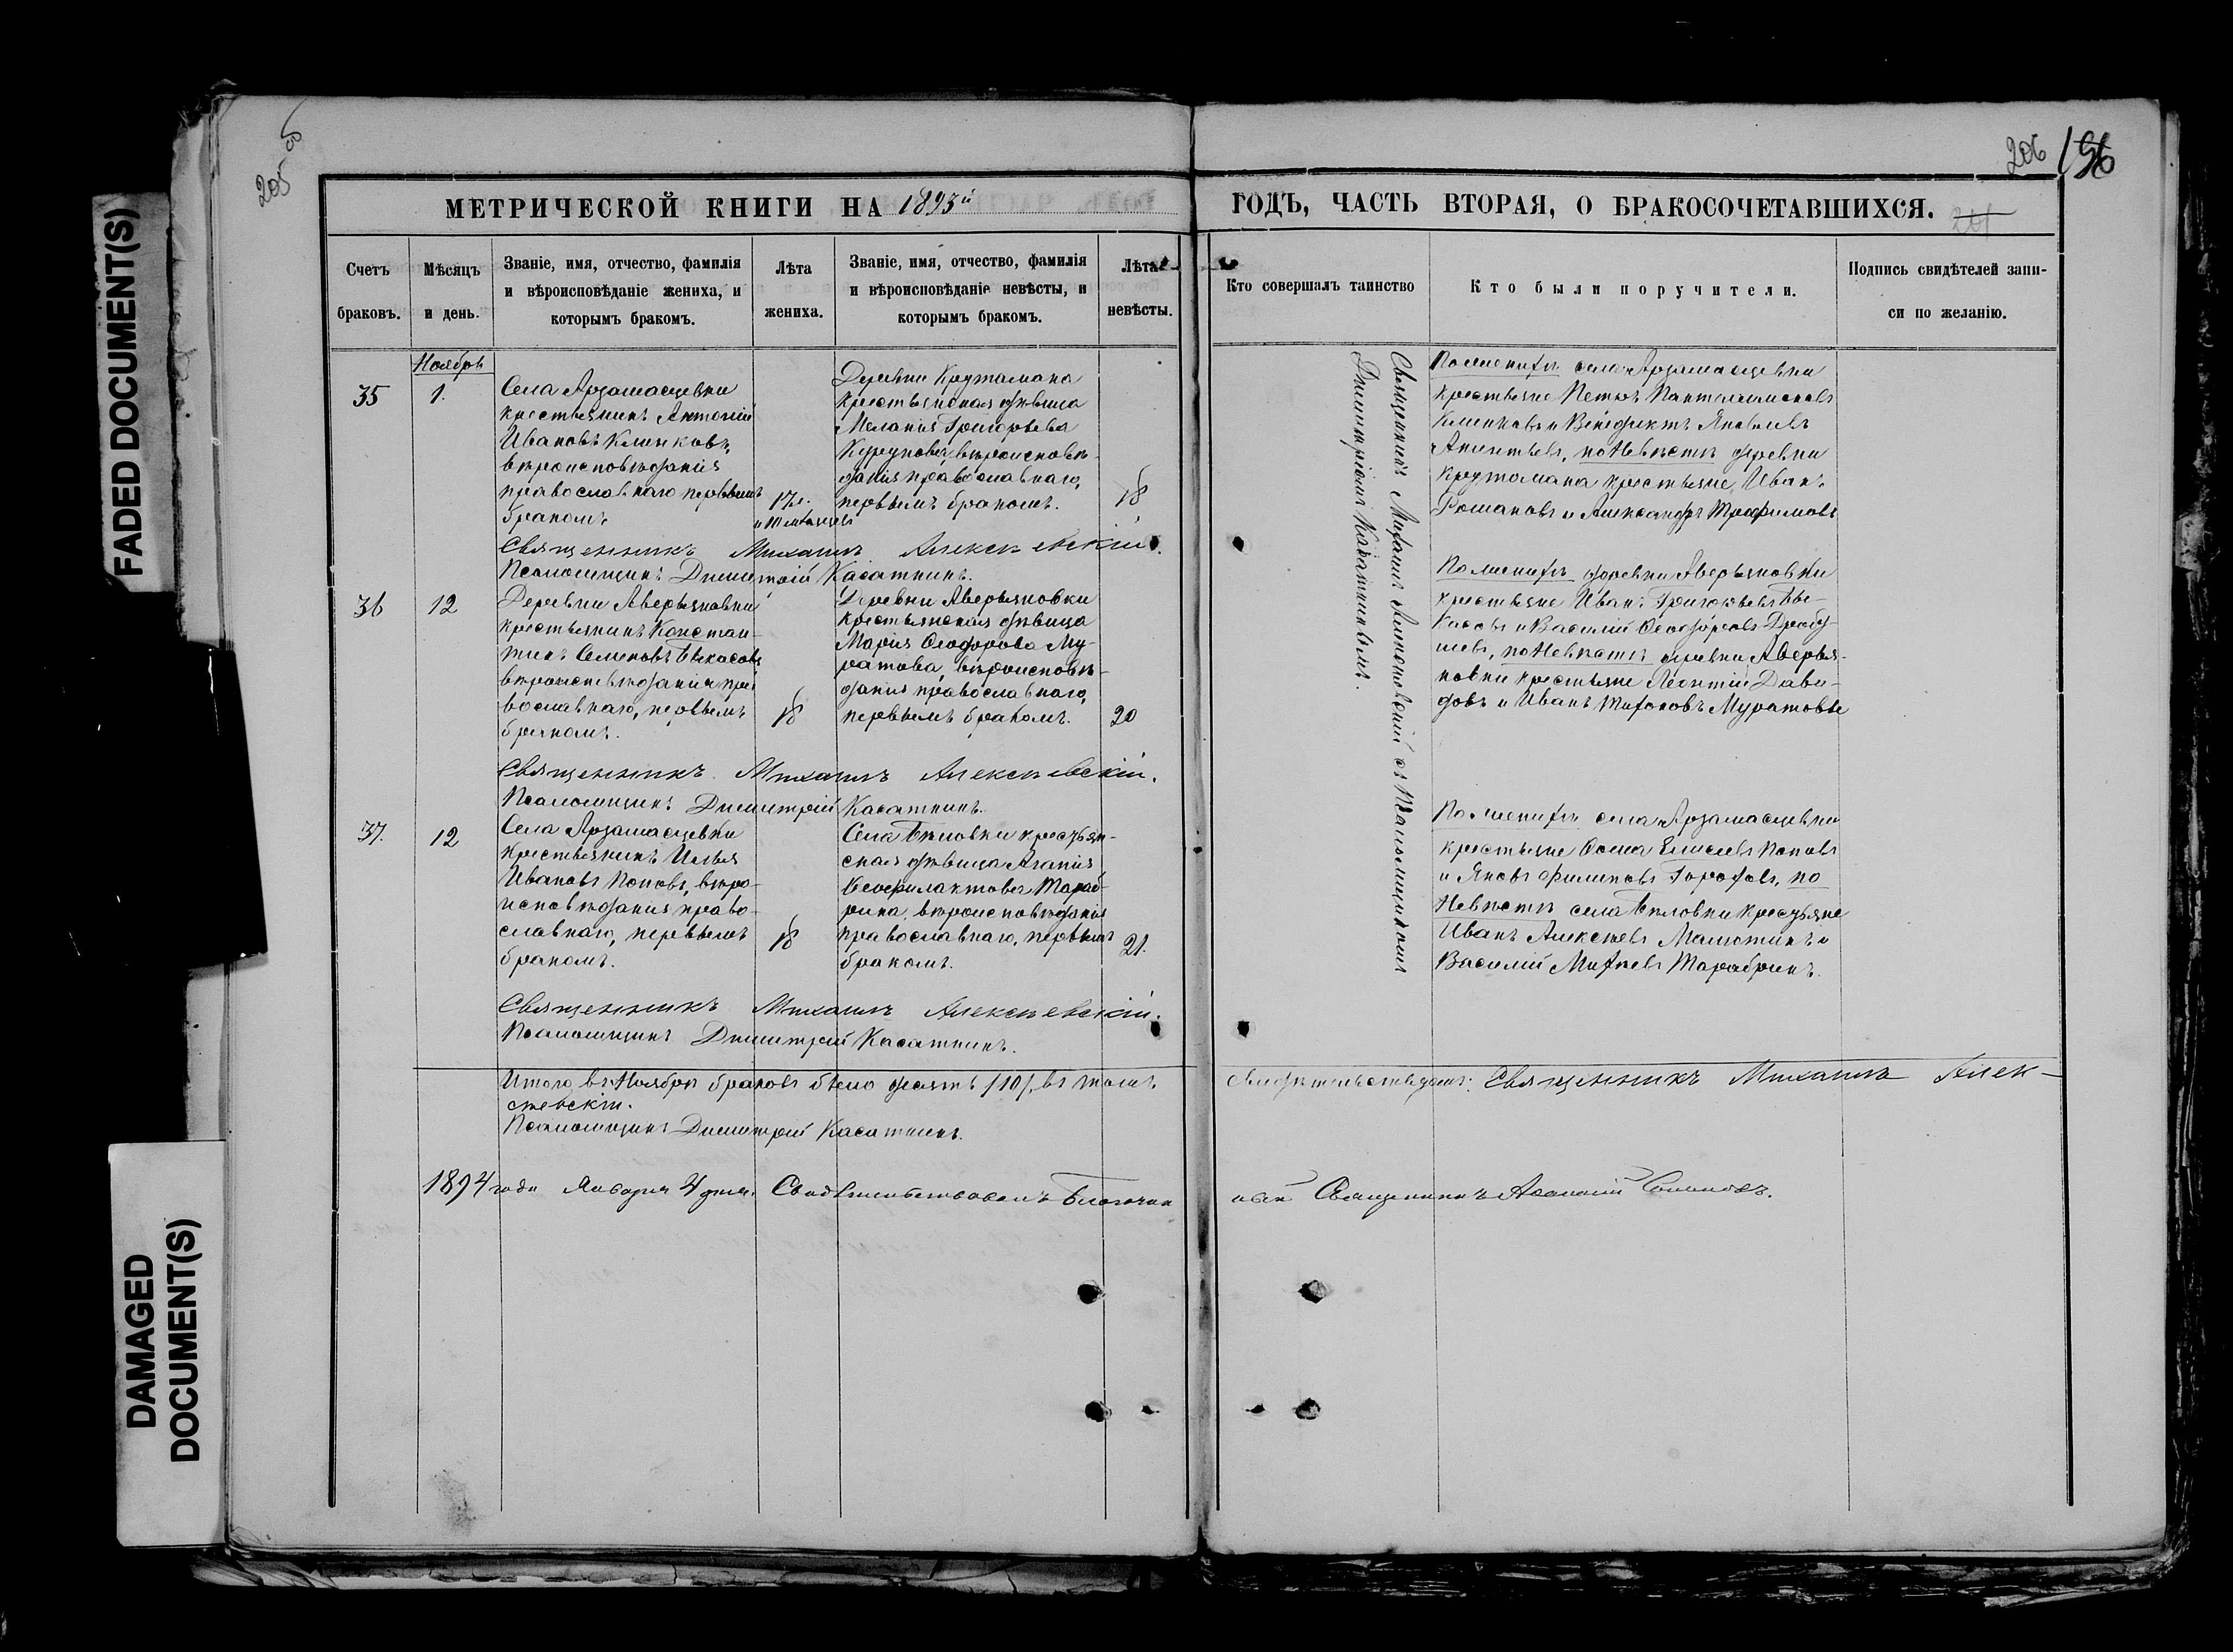 FADED DOCUMENT(S)
DAMAGED
DOCUMENT(S)
205 об
206 196
МЕТРИЧЕСКОЙ КНИГИ НА 1893й
ГОДЪ, ЧАСТЬ ВТОРАЯ, О БРАКОСОЧЕТАВШИХСЯ.
Счетъ
браковъ.
Мѣсяцъ
и день.
Званіе, имя, отчество, фамилія
и вѣроисповѣданіе жениха, и
которымъ бракомъ.
Лѣта
жениха.
Званіе, имя, отчество, фамилія
и вѣроисповѣданіе невѣсты, и
которымъ бракомъ.
Лѣта
невѣсты.
Кто совершалъ таинство
Кто были поручители.
Подпись свидѣтелей запи-
си по желанію.
Ноябрь
35
1.
Села Арзамасцевки
крестьянинъ Антоній
Ивановъ Клинковъ,
вѣроисповѣданія
православнаго первымъ
бракомъ
17 л.
Деревни Крутамака
крестьянская дѣвица
Меланія Григорьева
вѣроисповѣ-
данія православнаго,
первымъ бракомъ.
18
Священникъ Михаилъ Алексѣевскій.
Псаломщикъ Димитрій Касаткинъ.
Священникъ Михаилъ Алексѣевскій съ Псаломщикомъ
Димитріемъ Касаткинымъ.
По женихѣ села Арзамасцевки
крестьяне Петръ Пантелеимоновъ
Клинковъ и Венедиктъ Яковлевъ
по невѣстѣ деревни
Крутомака крестьяне Иванъ
Романовъ и Александръ Трофимовъ
36
12
Деревни Аверьяновки
крестьянинъ Констан-
тинъ Семеновъ Бекасовъ
вѣроисповѣданія пра-
вославнаго, первымъ
бракомъ.
18
Деревни Аверьяновки
крестьянская дѣвица
Марія Ѳеодорова Му-
ратова, вѣроисповѣ-
данія православнаго,
первымъ бракомъ.
20
Священникъ Михаилъ Алексѣевскій.
Псаломщикъ Димитрій Касаткинъ.
По женихѣ деревни Аверьяновки
крестьяне Иванъ Григорьевъ Бе-
касовъ и Василій Ѳеодоровъ
по невѣстѣ деревни Аверья-
новки крестьяне Леонтій Дави-
довъ и Иванъ Тихоновъ Муратовы
37.
12
Села Арзамасцевки
крестьянинъ Илья
Ивановъ Поповъ, вѣро-
исповѣданія право-
славнаго, первымъ
бракомъ.
18
Села Бѣловки крестьян-
ская дѣвица Агапія
Ѳеофилактова Тараб-
рина, вѣроисповѣданія
православнаго, первымъ
бракомъ.
21.
Священникъ Михаилъ Алексѣевскій.
Псаломщикъ Димитрій Касаткинъ.
По женихѣ села Арзамасцевки
крестьяне Ѳома Елисеевъ Поповъ
и Яковъ Филиповъ Гороховъ, по
невѣстѣ села Бѣловки крестьяне
Иванъ Алексѣевъ Малютинъ и
Василій Михѣевъ Тарабринъ.
Итого въ Ноябрѣ браковъ было десять /10/, въ томъ
свидѣтельствуемъ: Священникъ Михаилъ Алек-
сѣевскій.
Псаломщикъ Димитрій Касаткинъ.
1894 года Января 4 дня. Свидѣтельствовалъ Благочин
ный Священникъ